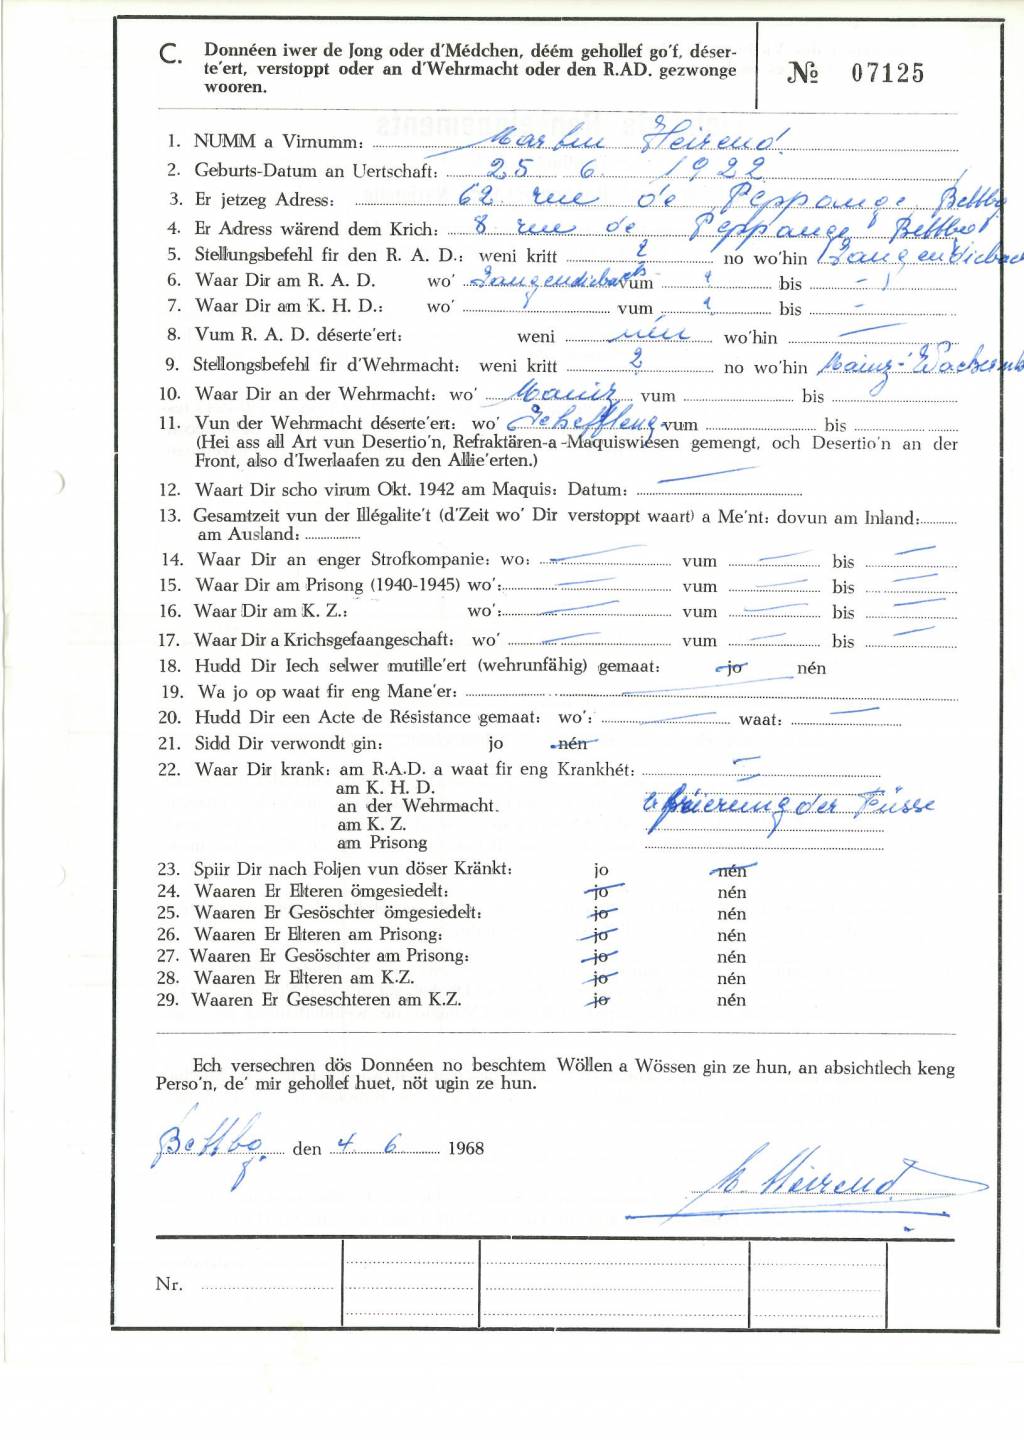 C. Donnéen iwer de Jong oder d'Médchen, déém gehollef go'f, déser-
te'ert, verstoppt oder an d'Wehrmacht oder den R.AD. gezwonge
wooren.
№ 07125
1. NUMM a Virnumm: Martin Heirend
2. Geburts-Datum an Uertschaft: 25 6 1922
3. Er jetzeg Adress: 62 rue de Peppange Bettbg
4. Er Adress wärend dem Krich: 8 rue de Peppange Bettbg
5. Stellungsbefehl fir den R. A. D.: weni kritt ? no wo'hin Langendiebach
6. Waar Dir am R. A. D. wo' Langendiebach vum ? bis -
7. Waar Dir am K. H. D.: wo' vum ? bis -
8. Vum R. A. D. déserte'ert: weni nén wo'hin —
9. Stellongsbefehl fir d'Wehrmacht: weni kritt ? no wo'hin Mainz-
10. Waar Dir an der Wehrmacht: wo' Mainz vum bis
11. Vun der Wehrmacht déserte'ert: wo' Scheffleng vum bis
(Hei ass all Art vun Desertio'n, Refraktären-a-Maquiswiesen gemengt, och Desertio'n an der
Front, also d'Iwerlaafen zu den Allie'erten.)
12. Waart Dir scho virum Okt. 1942 am Maquis: Datum: —
13. Gesamtzeit vun der Illégalite't (d'Zeit wo' Dir verstoppt waart) a Me'nt: dovun am Inland:
am Ausland:
14. Waar Dir an enger Strofkompanie: wo: — vum — bis —
15. Waar Dir am Prisong (1940-1945) wo': — vum — bis —
16. Waar Dir am K. Z.: wo': — vum — bis —
17. Waar Dir a Krichsgefaangeschaft: wo' — vum — bis —
18. Hudd Dir Iech selwer mutille'ert (wehrunfähig) gemaat: jo nén
19. Wa jo op waat fir eng Mane'er: —
20. Hudd Dir een Acte de Résistance gemaat: wo': — waat: —
21. Sidd Dir verwondt gin: jo nén
22. Waar Dir krank: am R.A.D. a waat fir eng Krankhét: —
am K. H. D. —
an der Wehrmacht. Erfrierung der Füsse
am K. Z.
am Prisong
23. Spiir Dir nach Foljen vun döser Kränkt: jo nén
24. Waaren Er Elteren ömgesiedelt: jo nén
25. Waaren Er Gesöschter ömgesiedelt: jo nén
26. Waaren Er Elteren am Prisong: jo nén
27. Waaren Er Gesöschter am Prisong: jo nén
28. Waaren Er Elteren am K.Z. jo nén
29. Waaren Er Geseschteren am K.Z. jo nén
Ech versechren dös Donnéen no beschtem Wöllen a Wössen gin ze hun, an absichtlech keng
Perso'n, de' mir gehollef huet, nöt ugin ze hun.
Bettbg. den 4 6 1968
M. Heirend
Nr.